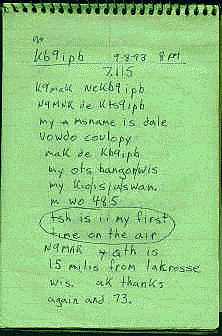 kb9ipb 9-8-93 8PM
7.115
K9mak NeKb9ipb
N9MNK de
my name is dale
mak de Kb9ipb
my ots bangorwis
my
m wo 485
tsh is ii my first
time on the air
N9MAK qth is
15 milis from lakrosse
wis. ak thanks
again and 73.